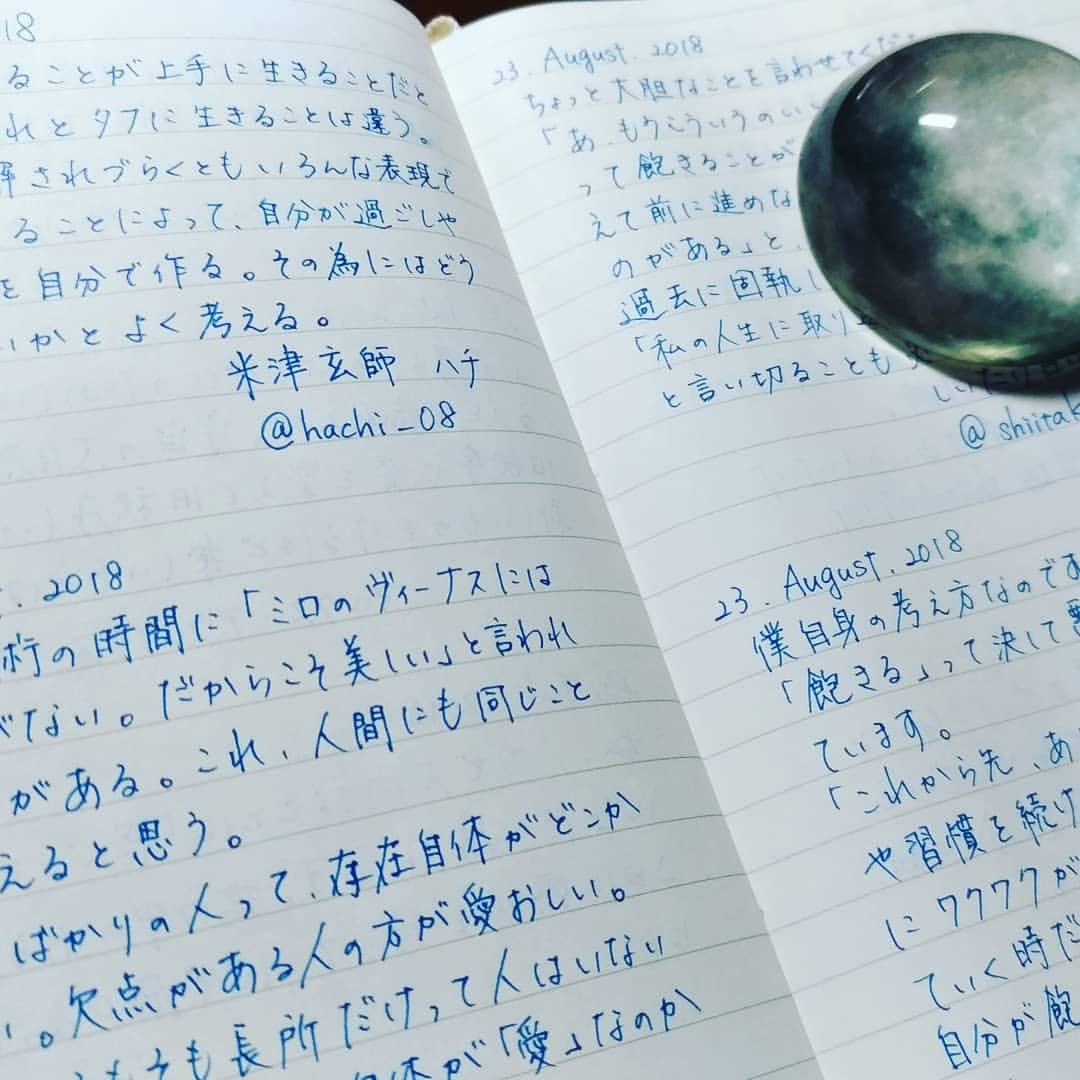 18
ることが上手に生きることだと
れとタフに生きることは違う。
解されづらくともいろんな表現で
ることによって、自分が過ごしや
を自分で作る。その為にはどう
いかとよく考える。
米津玄師 ハチ
@hachi_08
. 2018
術の時間に「ミロのヴィーナスには
がない。だからこそ美しい」と言われ
がある。これ、人間にも同じこと
えると思う。
ばかりの人って、存在自体がどこか
い。欠点がある人の方が愛おしい。
もそも長所だけって人はいない
自体が「愛」なのか
23. August. 2018
ちょっと大胆なことを言わせてくだ
「あ、もうこういうのいい
って飽きることが
えて前に進めな
のがある」と、
過去に固執し
「私の人生に取り
と言い切ることも
@shiitak
23. August. 2018
僕自身の考え方なのです
「飽きる」って決して悪
ています。
「これから先、あ
や習慣を続け
にワクワクが
ていく時だ
自分が飽